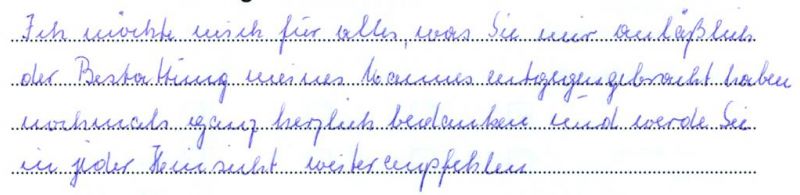 Ich möchte mich für alles, was Sie mir anläßlich
der Bestattung meines Mannes entgegengebracht haben
nochmals ganz herzlich bedanken und werde Sie
in jeder Hinsicht weiterempfehlen